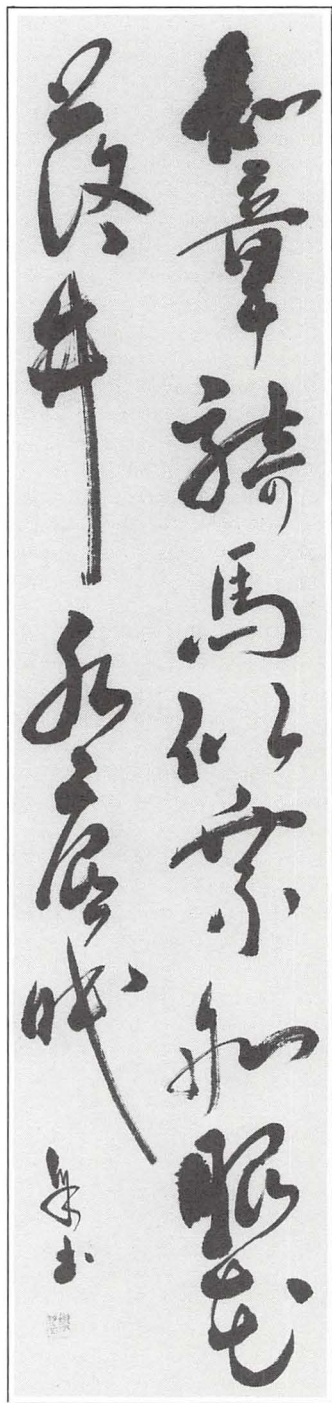 知章騎馬似乗船眼花
落井水底眠